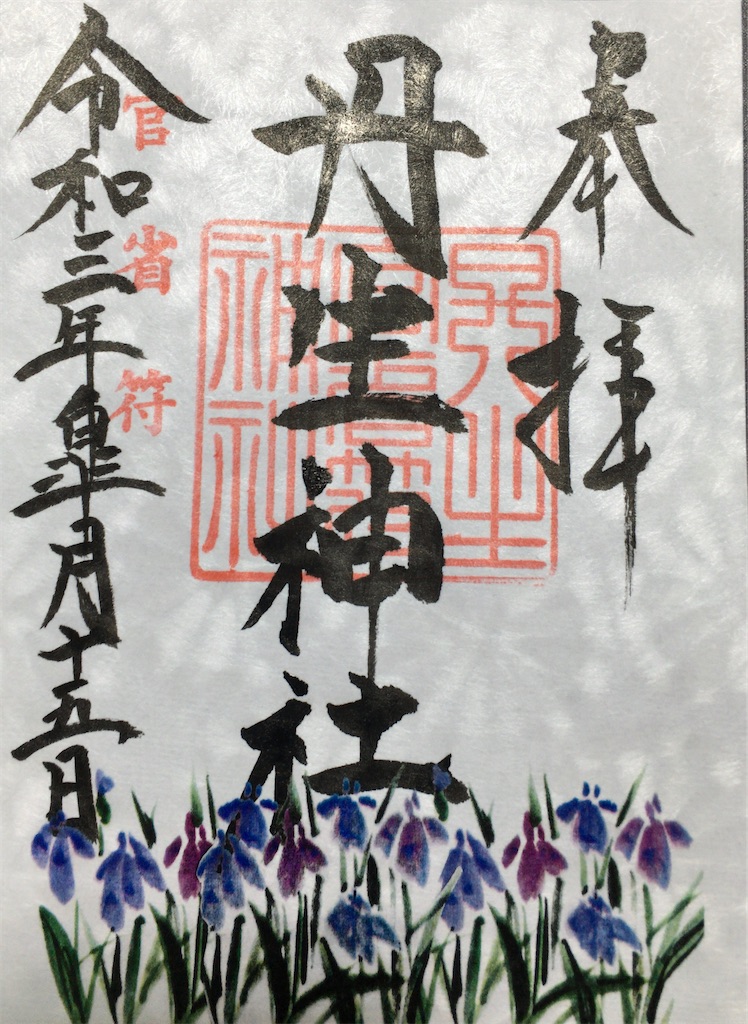 奉拝
丹生神社
官省符
令和三年皐月十五日